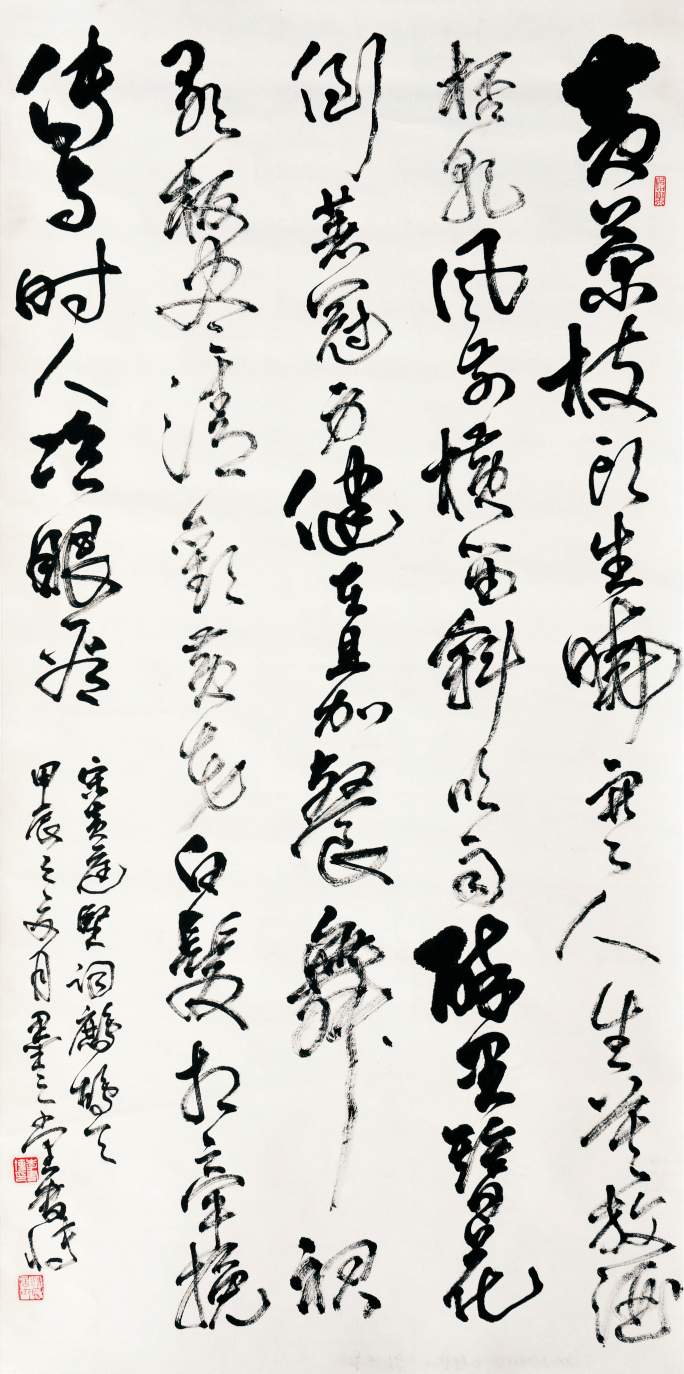 黄菊枝头生曉寒人生莫放酒
杯乾風前横笛斜吹雨醉里簪花
倒著冠身健在且加餐舞裙
歌板尽清歡黄花白髮相牵挽
傳与时人冷眼看
宋黄庭坚词鹧鸪天
甲辰之月墨三堂